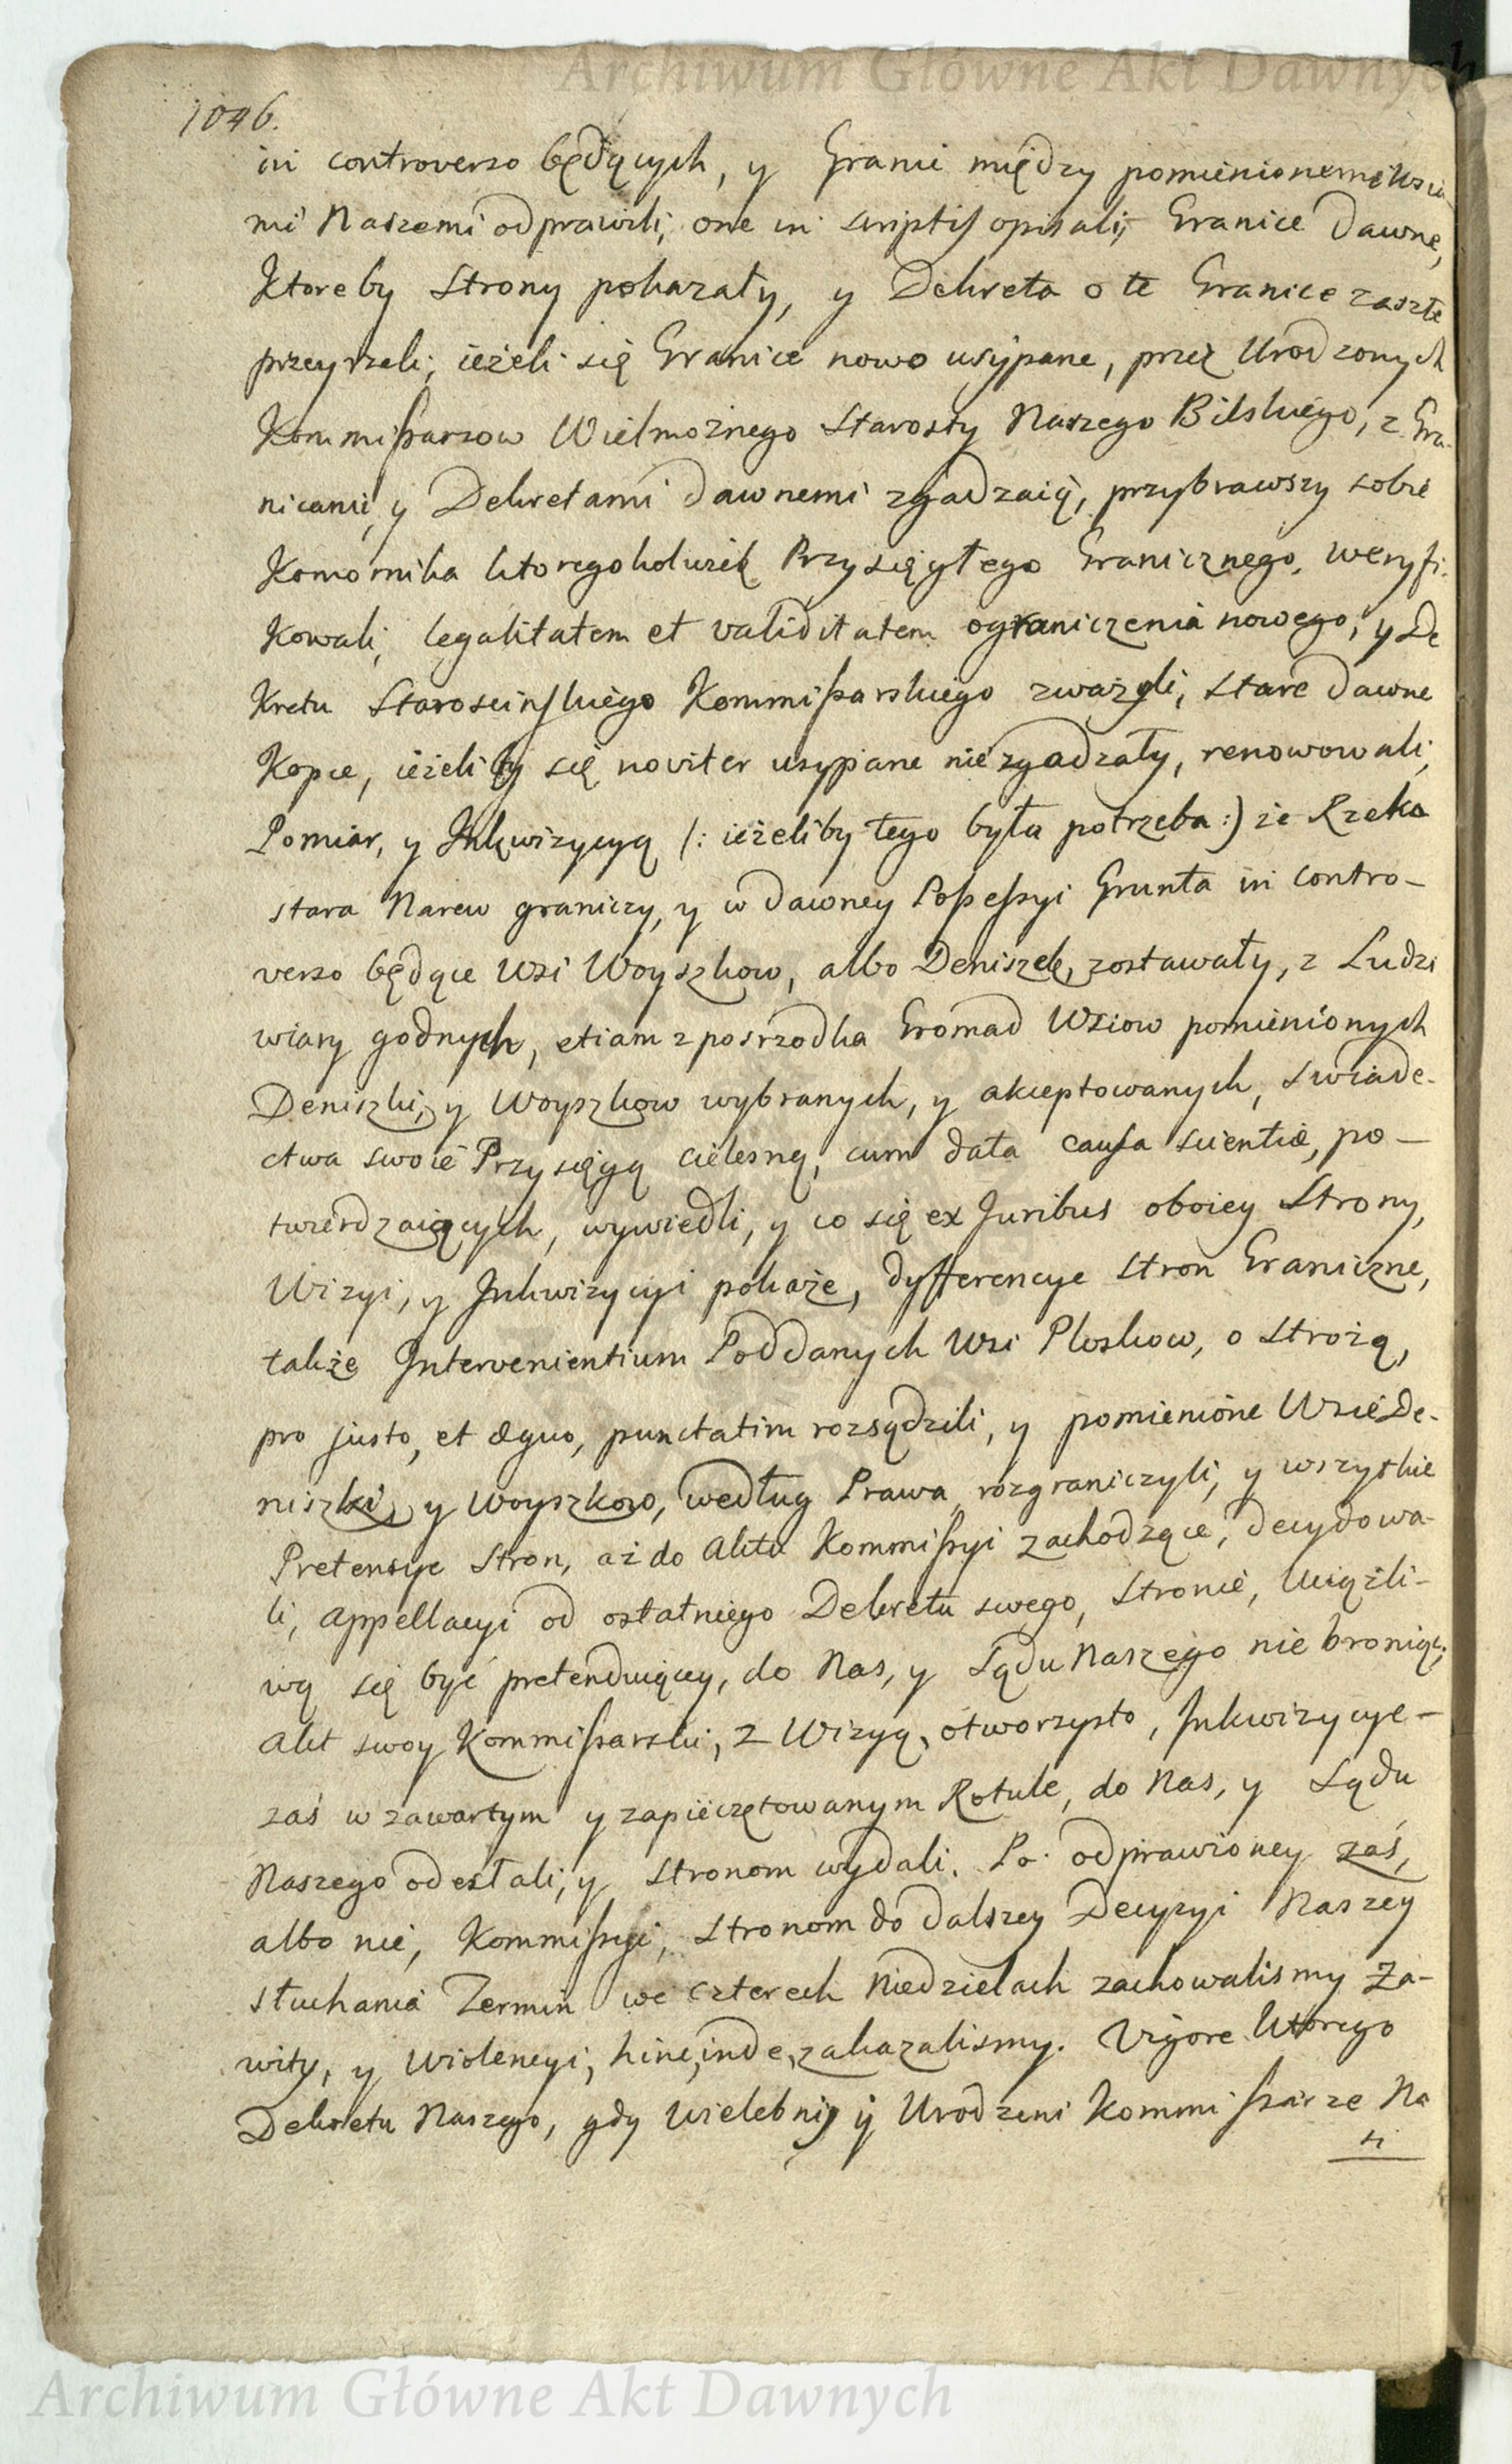 Archiwum Główne Akt Dawnych
1046.
in controverso będących, y Granic między pomienionemi Wsia-
mi Naszemi odprawili, one in scriptis opisali, Granice dawne,
Ktoreby Strony pokazały, y Dekreta o te Granice zaszłe
przeyrzeli, ieżeli się Granice nowo usypane, przez Urodzonych
Kommissarzow Wielmożnego Starosty Naszego Bilskiego, z Gra-
nicami, y Dekretami dawnemi zgadzaią, przybrawszy sobie
Komornika ktoregokolwiek Przysięgłego Granicznego, weryfi-
kowali, legalitatem et validitatem ograniczenia nowego, y De
kretu Staroscinskiego Kommissarskiego zważyli, stare dawne
Kopce, ieżeliby się noviter usypane nie zgadzały, renowowali,
Pomiar, y Inkwizycyą /: ieżeliby tego była potrzeba :) że Rzeka
stara Narew graniczy, y w dawney Possessyi Grunta in contro-
verso będące Wsi Woyszkow, albo Deniszek, zostawały, z Ludzi
wiary godnych, etiam z posrzodka Gromad Wsiow pomienionych
Deniszki, y Woyszkow wybranych, y akceptowanych, swiade-
ctwa swoie Przysięgą cielesną, cum data causa scientiæ, po-
twierdzaiących, wywiedli, y co się ex Juribus oboiey Strony,
Wizyi, y Inkwizycyi pokaże, dyfferencye Stron Graniczne,
także Intervenientium Poddanych Wsi Ploskow, o Strożą,
pro justo, et æquo, punctatim rozsądzili, y pomienione Wsie De-
niszki, y Woyszkow, według Prawa rozgraniczyli, y wszystkie
Pretensye Stron, aż do Aktu Kommissyi zachodzące, decydowa-
li, Appellacyi od ostatniego Dekretu swego, Stronie, Uciążli-
wą się być pretenduiącey, do Nas, y Sądu Naszego nie broniąc,
Akt swoy Kommissarski, z Wizyą, otworzysto, Inkwizycye-
zaś w zawartym y zapieczętowanym Rotule, do Nas, y Sądu
Naszego odesłali, y Stronom wydali. Po odprawioney zaś,
albo nie, Kommissyi, Stronom do dalszey Decyzyi Naszey
słuchania Termin we czterech Niedzielach zachowalismy Za-
wity, y Violencyi, hinc, inde, zakazalismy. Vigore ktorego
Dekretu Naszego, gdy Wielebni, y Urodzeni Kommissarze Na
si
Archiwum Główne Akt Dawnych